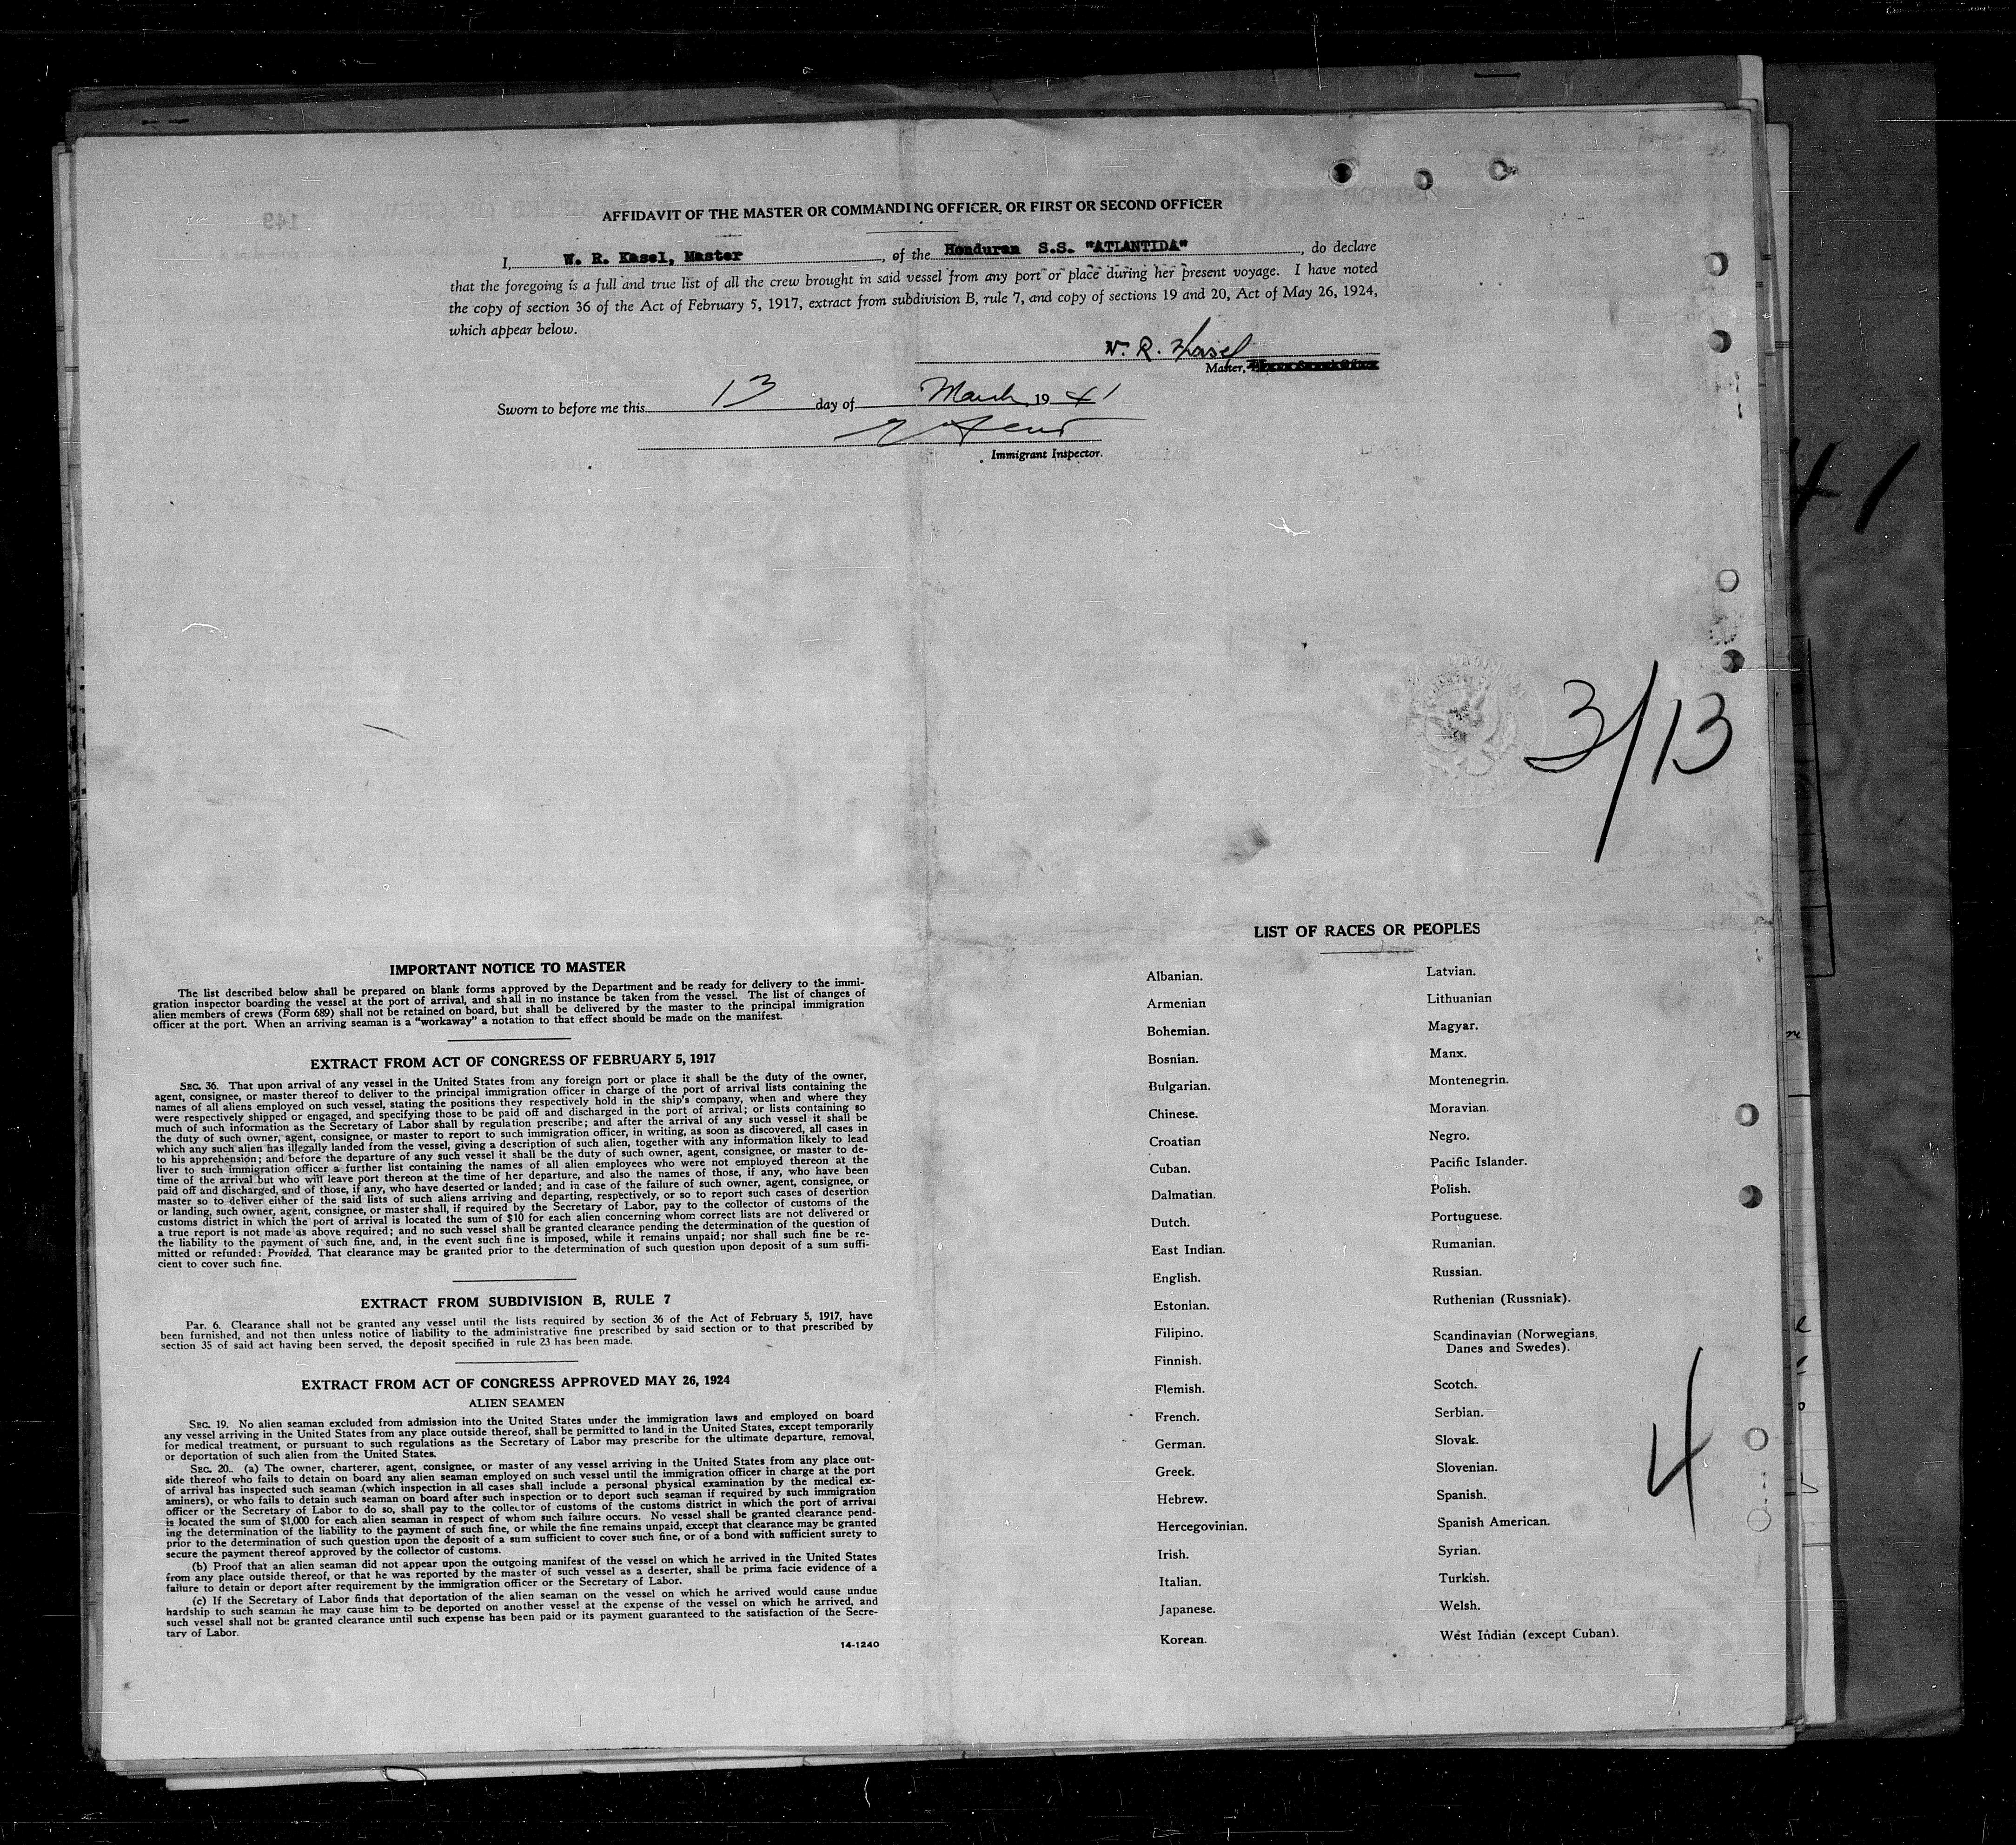 AFFIDAVIT OF THE MASTER OR COMMANDING OFFICER, OR FIRST OR SECOND OFFICER
I, W. R. Kasel, Master, of the Honduran S.S. "ATLANTIDA", do declare
that the foregoing is a full and true list of all the crew brought in said vessel from any port or place during her present voyage. I have noted
the copy of section 36 of the Act of February 5, 1917, extract from subdivision B, rule 7, and copy of sections 19 and 20, Act of May 26, 1924,
which appear below.
W. R. Kasel
Master,
Sworn to before me this 13 day of March, 1941
Immigrant Inspector.
41
3/13
IMPORTANT NOTICE TO MASTER
The list described below shall be prepared on blank forms approved by the Department and be ready for delivery to the immi-
gration inspector boarding the vessel at the port of arrival, and shall in no instance be taken from the vessel. The list of changes of
alien members of crews (Form 689) shall not be retained on board, but shall be delivered by the master to the principal immigration
officer at the port. When an arriving seaman is a "workaway" a notation to that effect should be made on the manifest.
EXTRACT FROM ACT OF CONGRESS OF FEBRUARY 5, 1917
SEC. 36. That upon arrival of any vessel in the United States from any foreign port or place it shall be the duty of the owner,
agent, consignee, or master thereof to deliver to the principal immigration officer in charge of the port of arrival lists containing the
names of all aliens employed on such vessel, stating the positions they respectively hold in the ship's company, when and where they
were respectively shipped or engaged, and specifying those to be paid off and discharged in the port of arrival; or lists containing so
much of such information as the Secretary of Labor shall by regulation prescribe; and after the arrival of any such vessel it shall be
the duty of such owner, agent, consignee, or master to report to such immigration officer, in writing, as soon as discovered, all cases in
which any such alien has illegally landed from the vessel, giving a description of such alien, together with any information likely to lead
to his apprehension; and before the departure of any such vessel it shall be the duty of such owner, agent, consignee, or master to de-
liver to such immigration officer a further list containing the names of all alien employees who were not employed thereon at the
time of the arrival but who will leave port thereon at the time of her departure, and also the names of those, if any, who have been
paid off and discharged, and of those, if any, who have deserted or landed; and in case of the failure of such owner, agent, consignee, or
master so to deliver either of the said lists of such aliens arriving and departing, respectively, or so to report such cases of desertion
or landing, such owner, agent, consignee, or master shall, if required by the Secretary of Labor, pay to the collector of customs of the
customs district in which the port of arrival is located the sum of $10 for each alien concerning whom correct lists are not delivered or
a true report is not made as above required; and no such vessel shall be granted clearance pending the determination of the question of
the liability to the payment of such fine, and, in the event such fine is imposed, while it remains unpaid; nor shall such fine be re-
mitted or refunded: Provided, That clearance may be granted prior to the determination of such question upon deposit of a sum suffi-
cient to cover such fine.
EXTRACT FROM SUBDIVISION B, RULE 7
Par. 6. Clearance shall not be granted any vessel until the lists required by section 36 of the Act of February 5, 1917, have
been furnished, and not then unless notice of liability to the administrative fine prescribed by said section or to that prescribed by
section 35 of said act having been served, the deposit specified in rule 23 has been made.
EXTRACT FROM ACT OF CONGRESS APPROVED MAY 26, 1924
ALIEN SEAMEN
SEC. 19. No alien seaman excluded from admission into the United States under the immigration laws and employed on board
any vessel arriving in the United States from any place outside thereof, shall be permitted to land in the United States, except temporarily
for medical treatment, or pursuant to such regulations as the Secretary of Labor may prescribe for the ultimate departure, removal,
or deportation of such alien from the United States.
SEC. 20. (a) The owner, charterer, agent, consignee, or master of any vessel arriving in the United States from any place out-
side thereof who fails to detain on board any alien seaman employed on such vessel until the immigration officer in charge at the port
of arrival has inspected such seaman (which inspection in all cases shall include a personal physical examination by the medical ex-
aminers), or who fails to detain such seaman on board after such inspection or to deport such seaman if required by such immigration
officer or the Secretary of Labor to do so, shall pay to the collector of customs of the customs district in which the port of arrival
is located the sum of $1,000 for each alien seaman in respect of whom such failure occurs. No vessel shall be granted clearance pend-
ing the determination of the liability to the payment of such fine, or while the fine remains unpaid, except that clearance may be granted
prior to the determination of such question upon the deposit of a sum sufficient to cover such fine, or of a bond with sufficient surety to
secure the payment thereof approved by the collector of customs.
(b) Proof that an alien seaman did not appear upon the outgoing manifest of the vessel on which he arrived in the United States
from any place outside thereof, or that he was reported by the master of such vessel as a deserter, shall be prima facie evidence of a
failure to detain or deport after requirement by the immigration officer or the Secretary of Labor.
(c) If the Secretary of Labor finds that deportation of the alien seaman on the vessel on which he arrived would cause undue
hardship to such seaman he may cause him to be deported on another vessel at the expense of the vessel on which he arrived, and
such vessel shall not be granted clearance until such expense has been paid or its payment guaranteed to the satisfaction of the Secre-
tary of Labor.
14-1240
LIST OF RACES OR PEOPLES
Albanian.
Armenian
Bohemian.
Bosnian.
Bulgarian.
Chinese.
Croatian
Cuban.
Dalmatian.
Dutch.
East Indian.
English.
Estonian.
Filipino.
Finnish.
Flemish.
French.
German.
Greek.
Hebrew.
Hercegovinian.
Irish.
Italian.
Japanese.
Korean.
Latvian.
Lithuanian
Magyar.
Manx.
Montenegrin.
Moravian.
Negro.
Pacific Islander.
Polish.
Portuguese.
Rumanian.
Russian.
Ruthenian (Russniak).
Scandinavian (Norwegians,
Danes and Swedes).
Scotch.
Serbian.
Slovak.
Slovenian.
Spanish.
Spanish American.
Syrian.
Turkish.
Welsh.
West Indian (except Cuban).
4